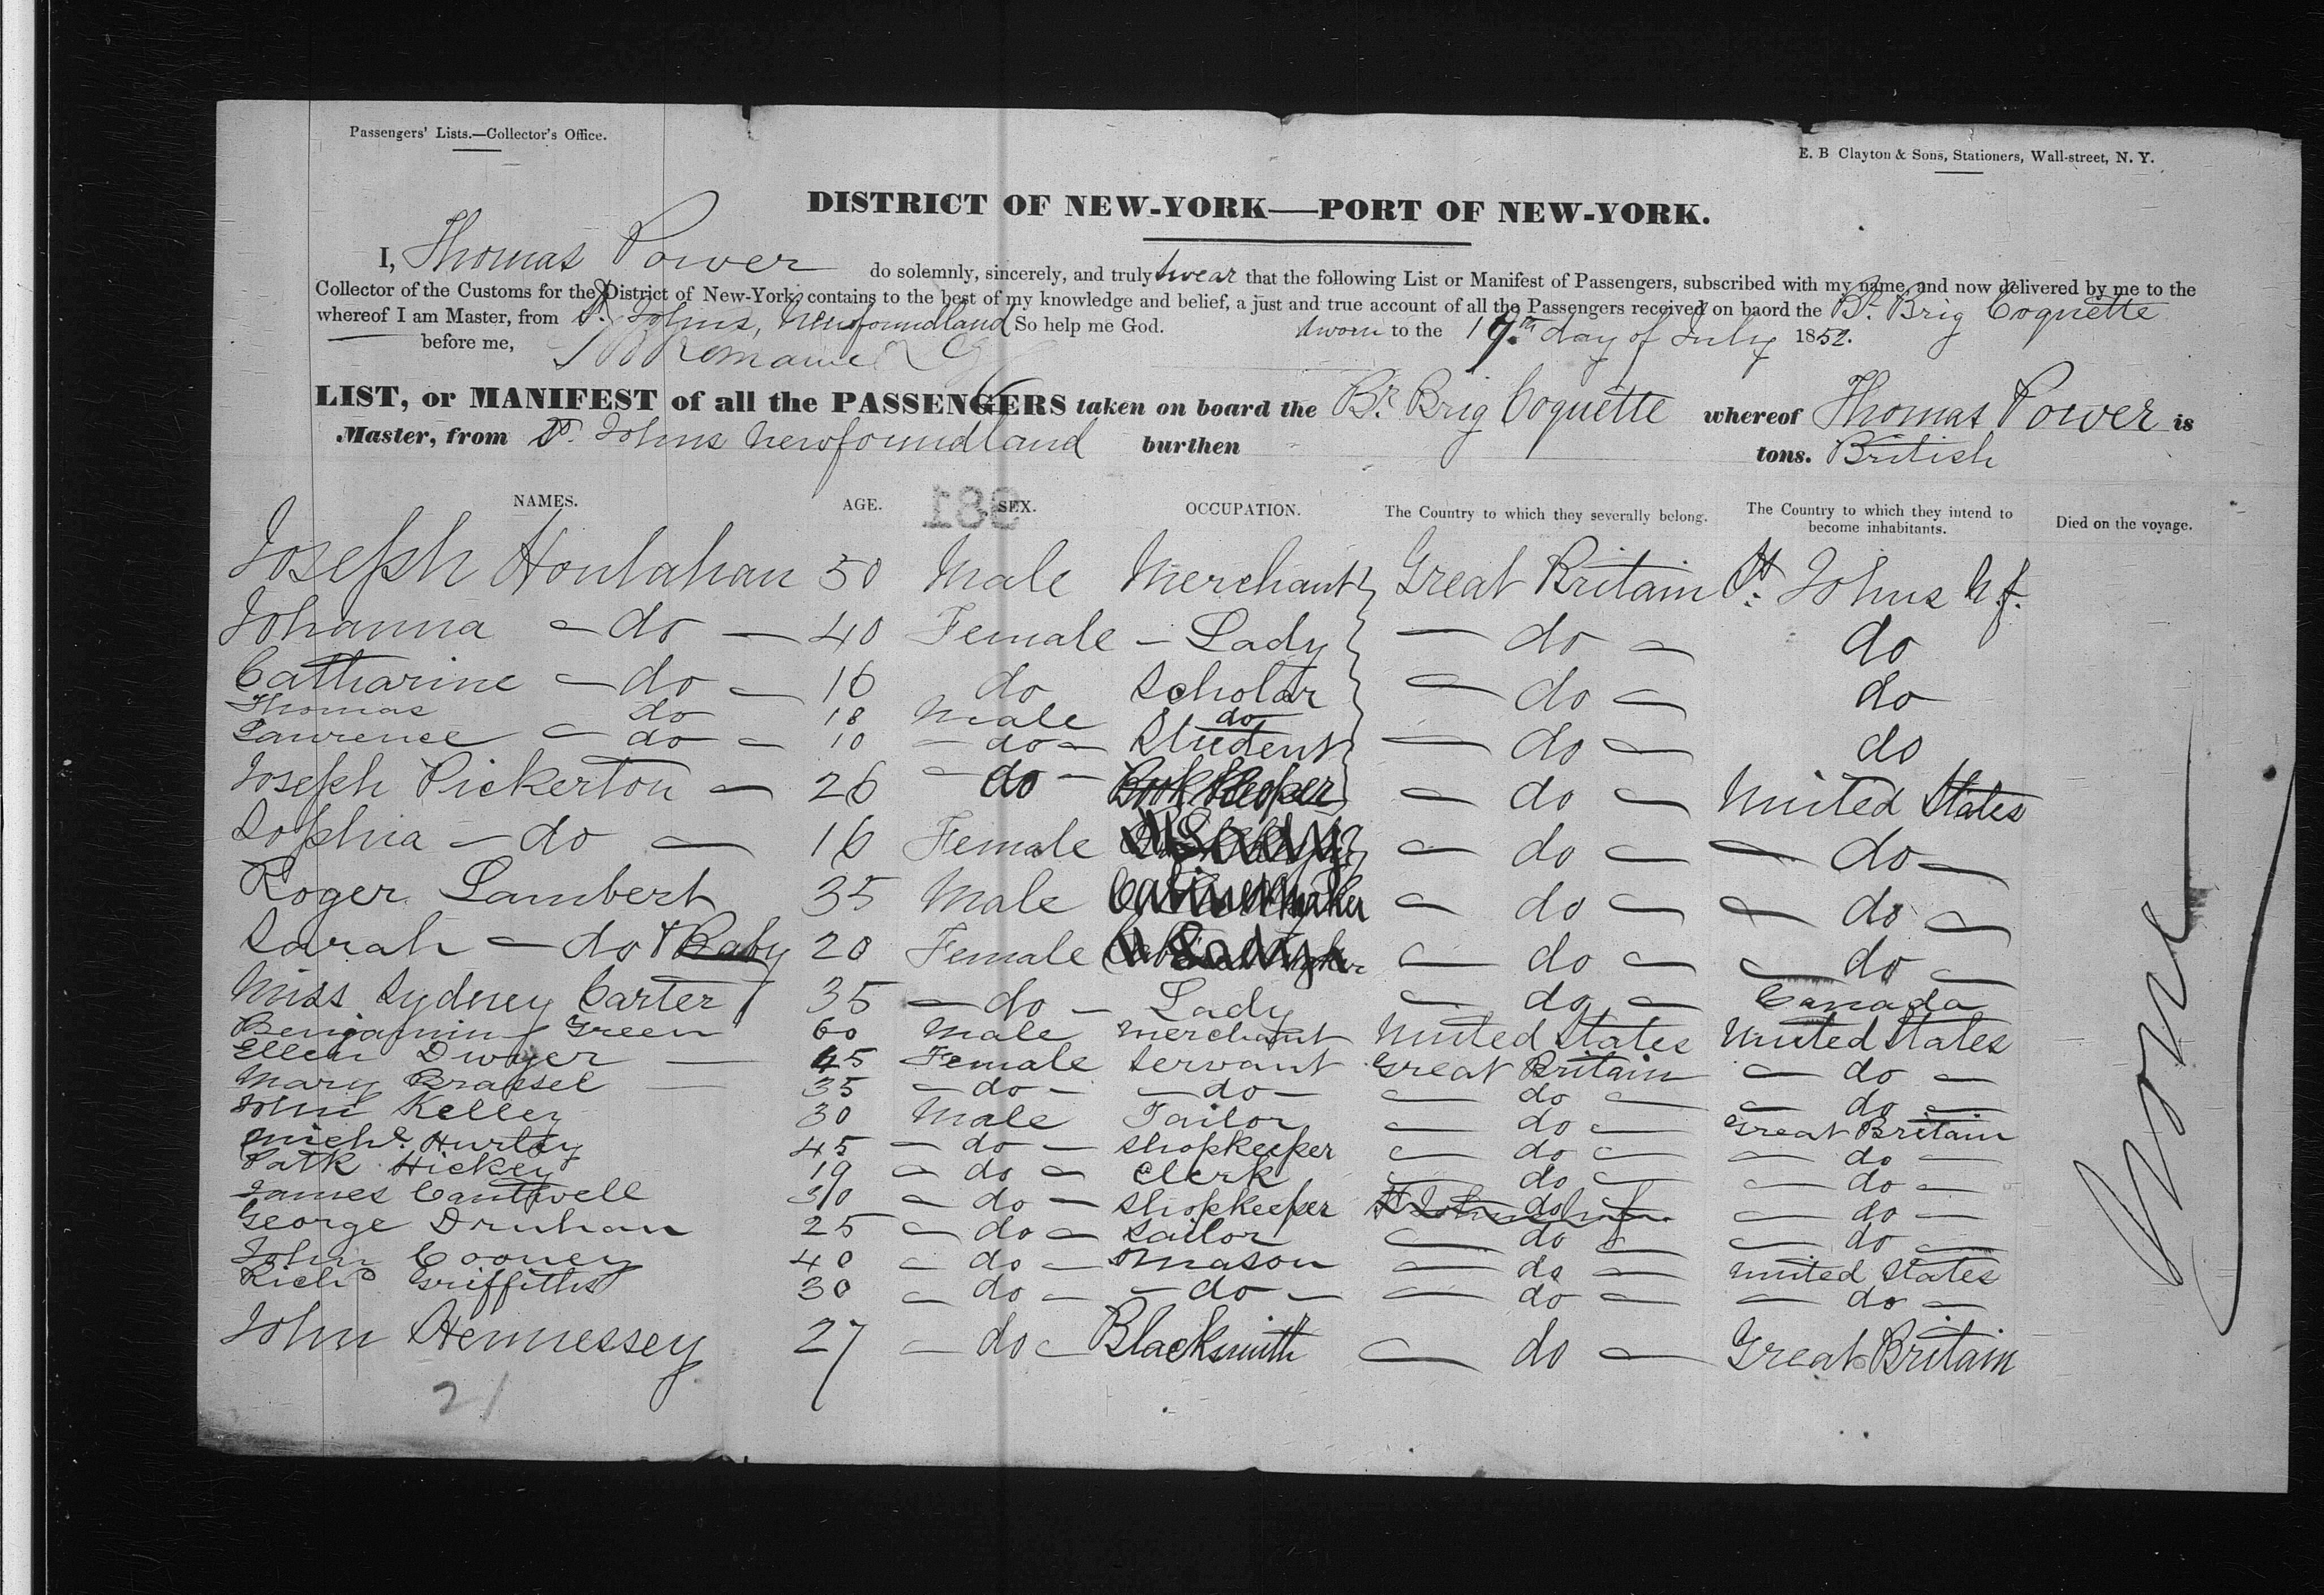 Passengers' Lists.—Collector's Office.
E. B Clayton & Sons, Stationers, Wall-street, N. Y.
DISTRICT OF NEW-YORK—PORT OF NEW-YORK.
I, Thomas Power do solemnly, sincerely, and truly swear that the following List or Manifest of Passengers, subscribed with my name, and now delivered by me to the
Collector of the Customs for the District of New-York, contains to the best of my knowledge and belief, a just and true account of all the Passengers received on baord the Br. Brig Coquette
whereof I am Master, from St. Johns, Newfoundland So help me God. Sworn to the 19th day of July 1852.
before me,
LIST, or MANIFEST of all the PASSENGERS taken on board the Br. Brig Coquette whereof Thomas Power is
Master, from St. Johns Newfoundland burthen tons. British
NAMES. AGE. SEX. OCCUPATION. The Country to which they severally belong. The Country to which they intend to become inhabitants. Died on the voyage.
981
Joseph Houlahan 50 Male Merchant Great Britain St. Johns N.f.
Johanna — do — 40 Female — Lady — do — do
Catharine — do — 16 do Scholar — do — do
Thomas do 18 Male do
Lawrence — do — 10 — do — Student — do — do
Joseph Pickerton — 26 — do — Book Keeper — do — United States
Sophia — do — 16 Female Lady — do — — do —
Roger Lambert 35 Male Cabinet Maker — do — — do —
Sarah — do & Baby 20 Female Lady — do — — do —
Miss Sydney Carter 35 — do — Lady — do — Canada
Benjamin Green 60 Male Merchant United States United States
Ellen Dwyer — 45 Female Servant Great Britain — do —
Mary Brassel — 35 — do — — do — — do — — do —
John Kelley 30 Male Tailor — do — Great Britain
Michl. Hurley 45 — do — Shopkeeper — do — — do —
Patk Hickey 19 — do — Clerk — do — — do —
James Cantwell 30 — do — Shopkeeper do — do —
George Druhan 25 — do — Sailor — do — — do —
John Cooney 40 — do — Mason — do — United States
Richd Griffiths 30 — do — — do — — do — — do —
John Hennessey 27 — do — Blacksmith — do — Great Britain
None
21